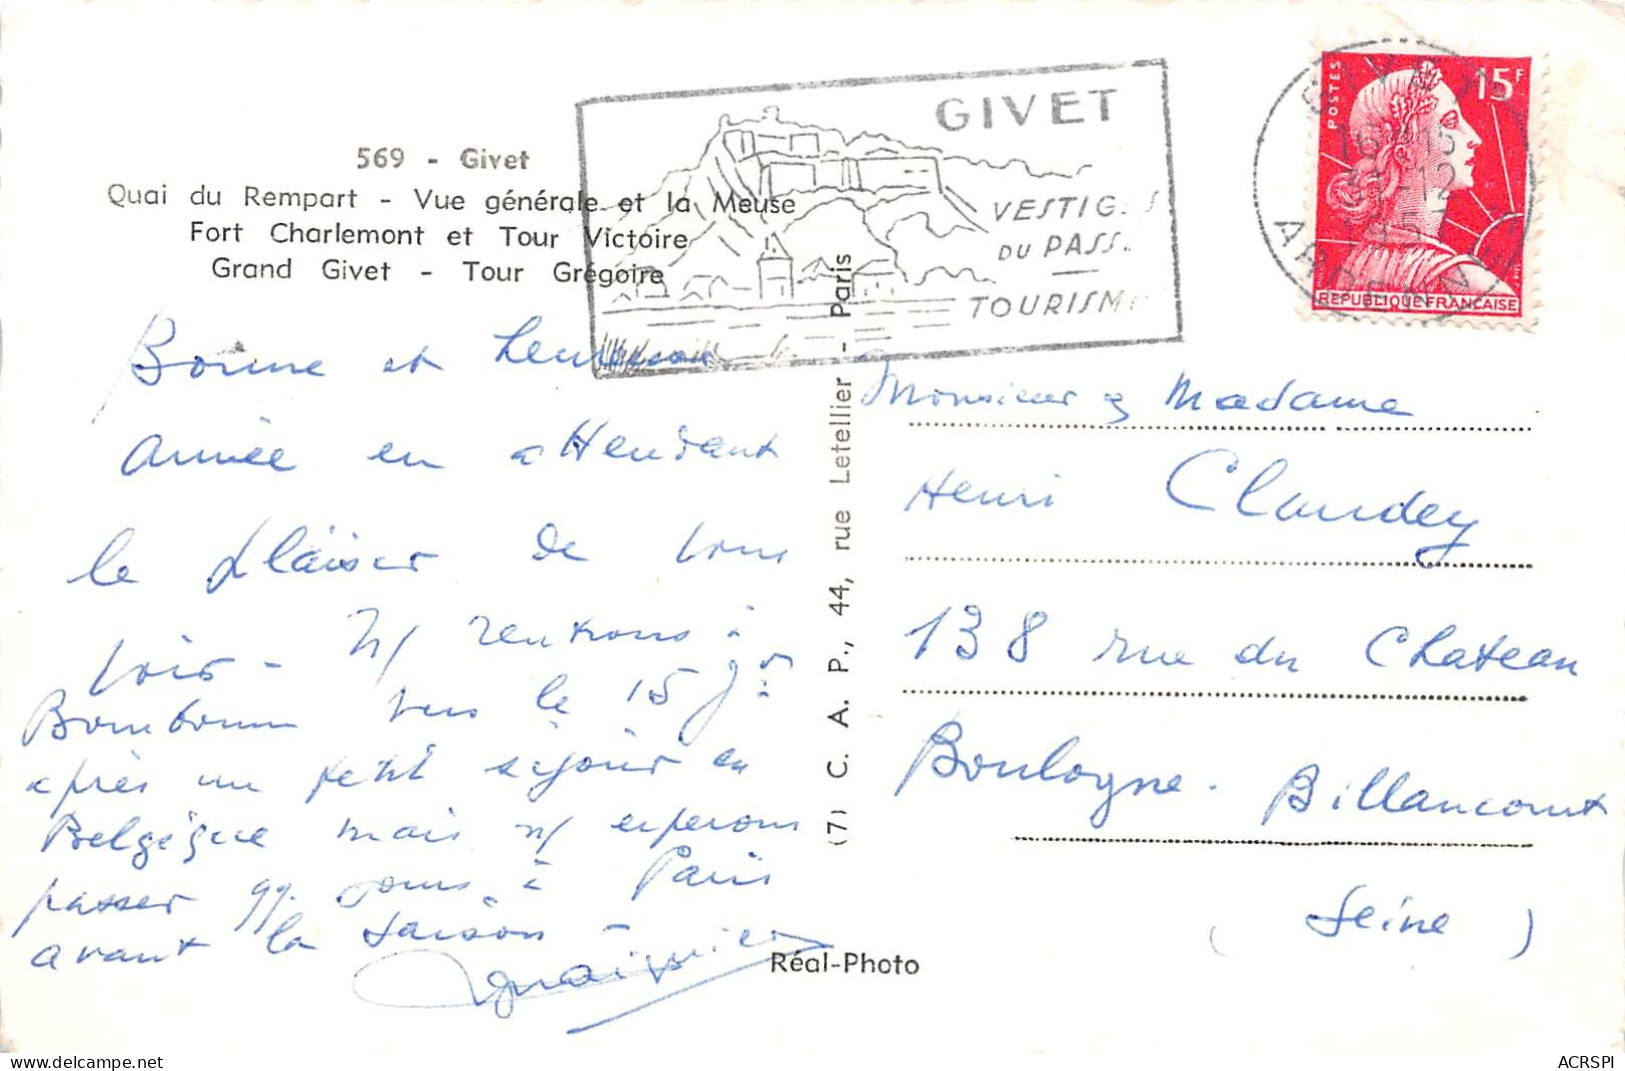 569 - Givet
Quai du Rempart - Vue générale et la Meuse
Fort Charlemont et Tour Victoire
Grand Givet - Tour Grégoire
GIVET
VESTIG S
DU PASS
TOURISM
POSTES
15F
REPUBLIQUE FRANCAISE
GIVET
16 H 15
31-12
1957
ARDENNES
Bonne et heureuse
année en attendant
le plaisir de vous
voir - n/ rentrons à
vers le 15 jer
après un petit séjour en
Belgique mais n/ espérons
passer qq. jours à Paris
avant la saison -
(7) C. A. P., 44, rue Letellier - Paris
Monsieur & Madame
Henri Claudey
138 rue du Chateau
Boulogne. Billancourt
(Seine)
Réal-Photo
delcampe.net
ACRSPI